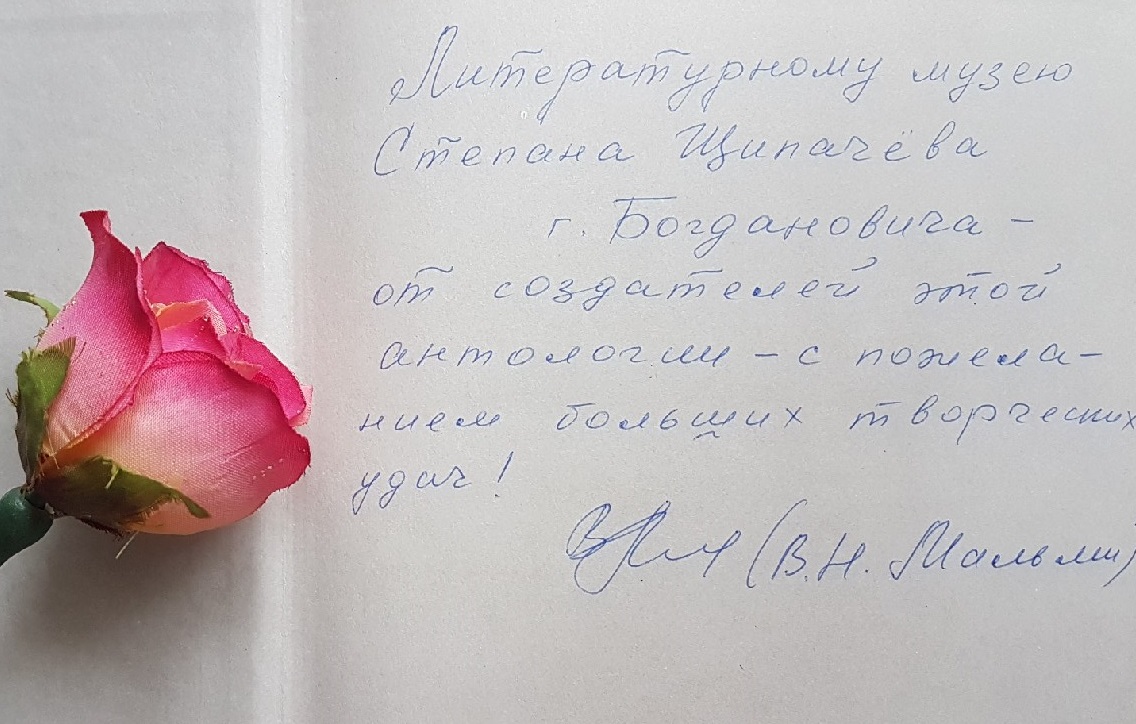 Литературному музею
Степана Щипачёва
г. Богдановича –
от создателей этой
антологии – с пожела–
нием больших творческих
удач!
(В.Н. Мальми)